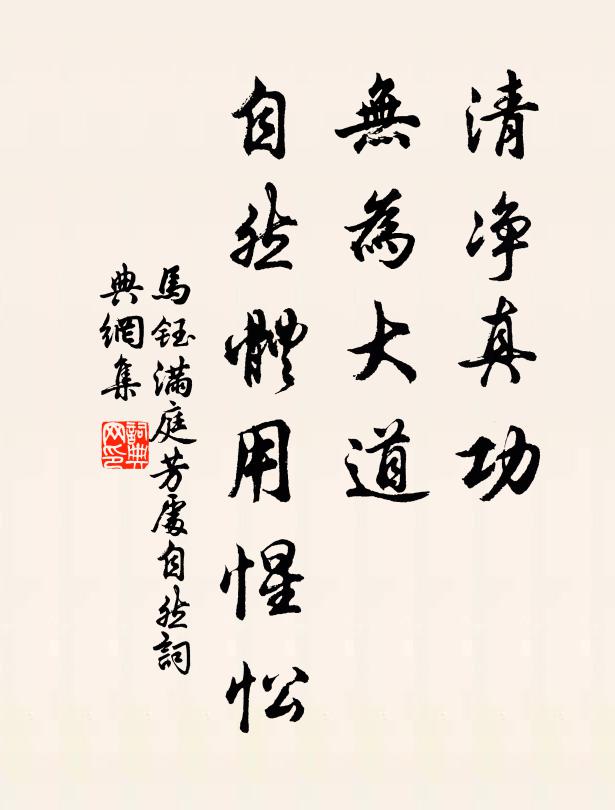 清净真功
無為大道
自然體用惺忪
馬鈺滿庭芳處自然詞
典網集
詞典
网印